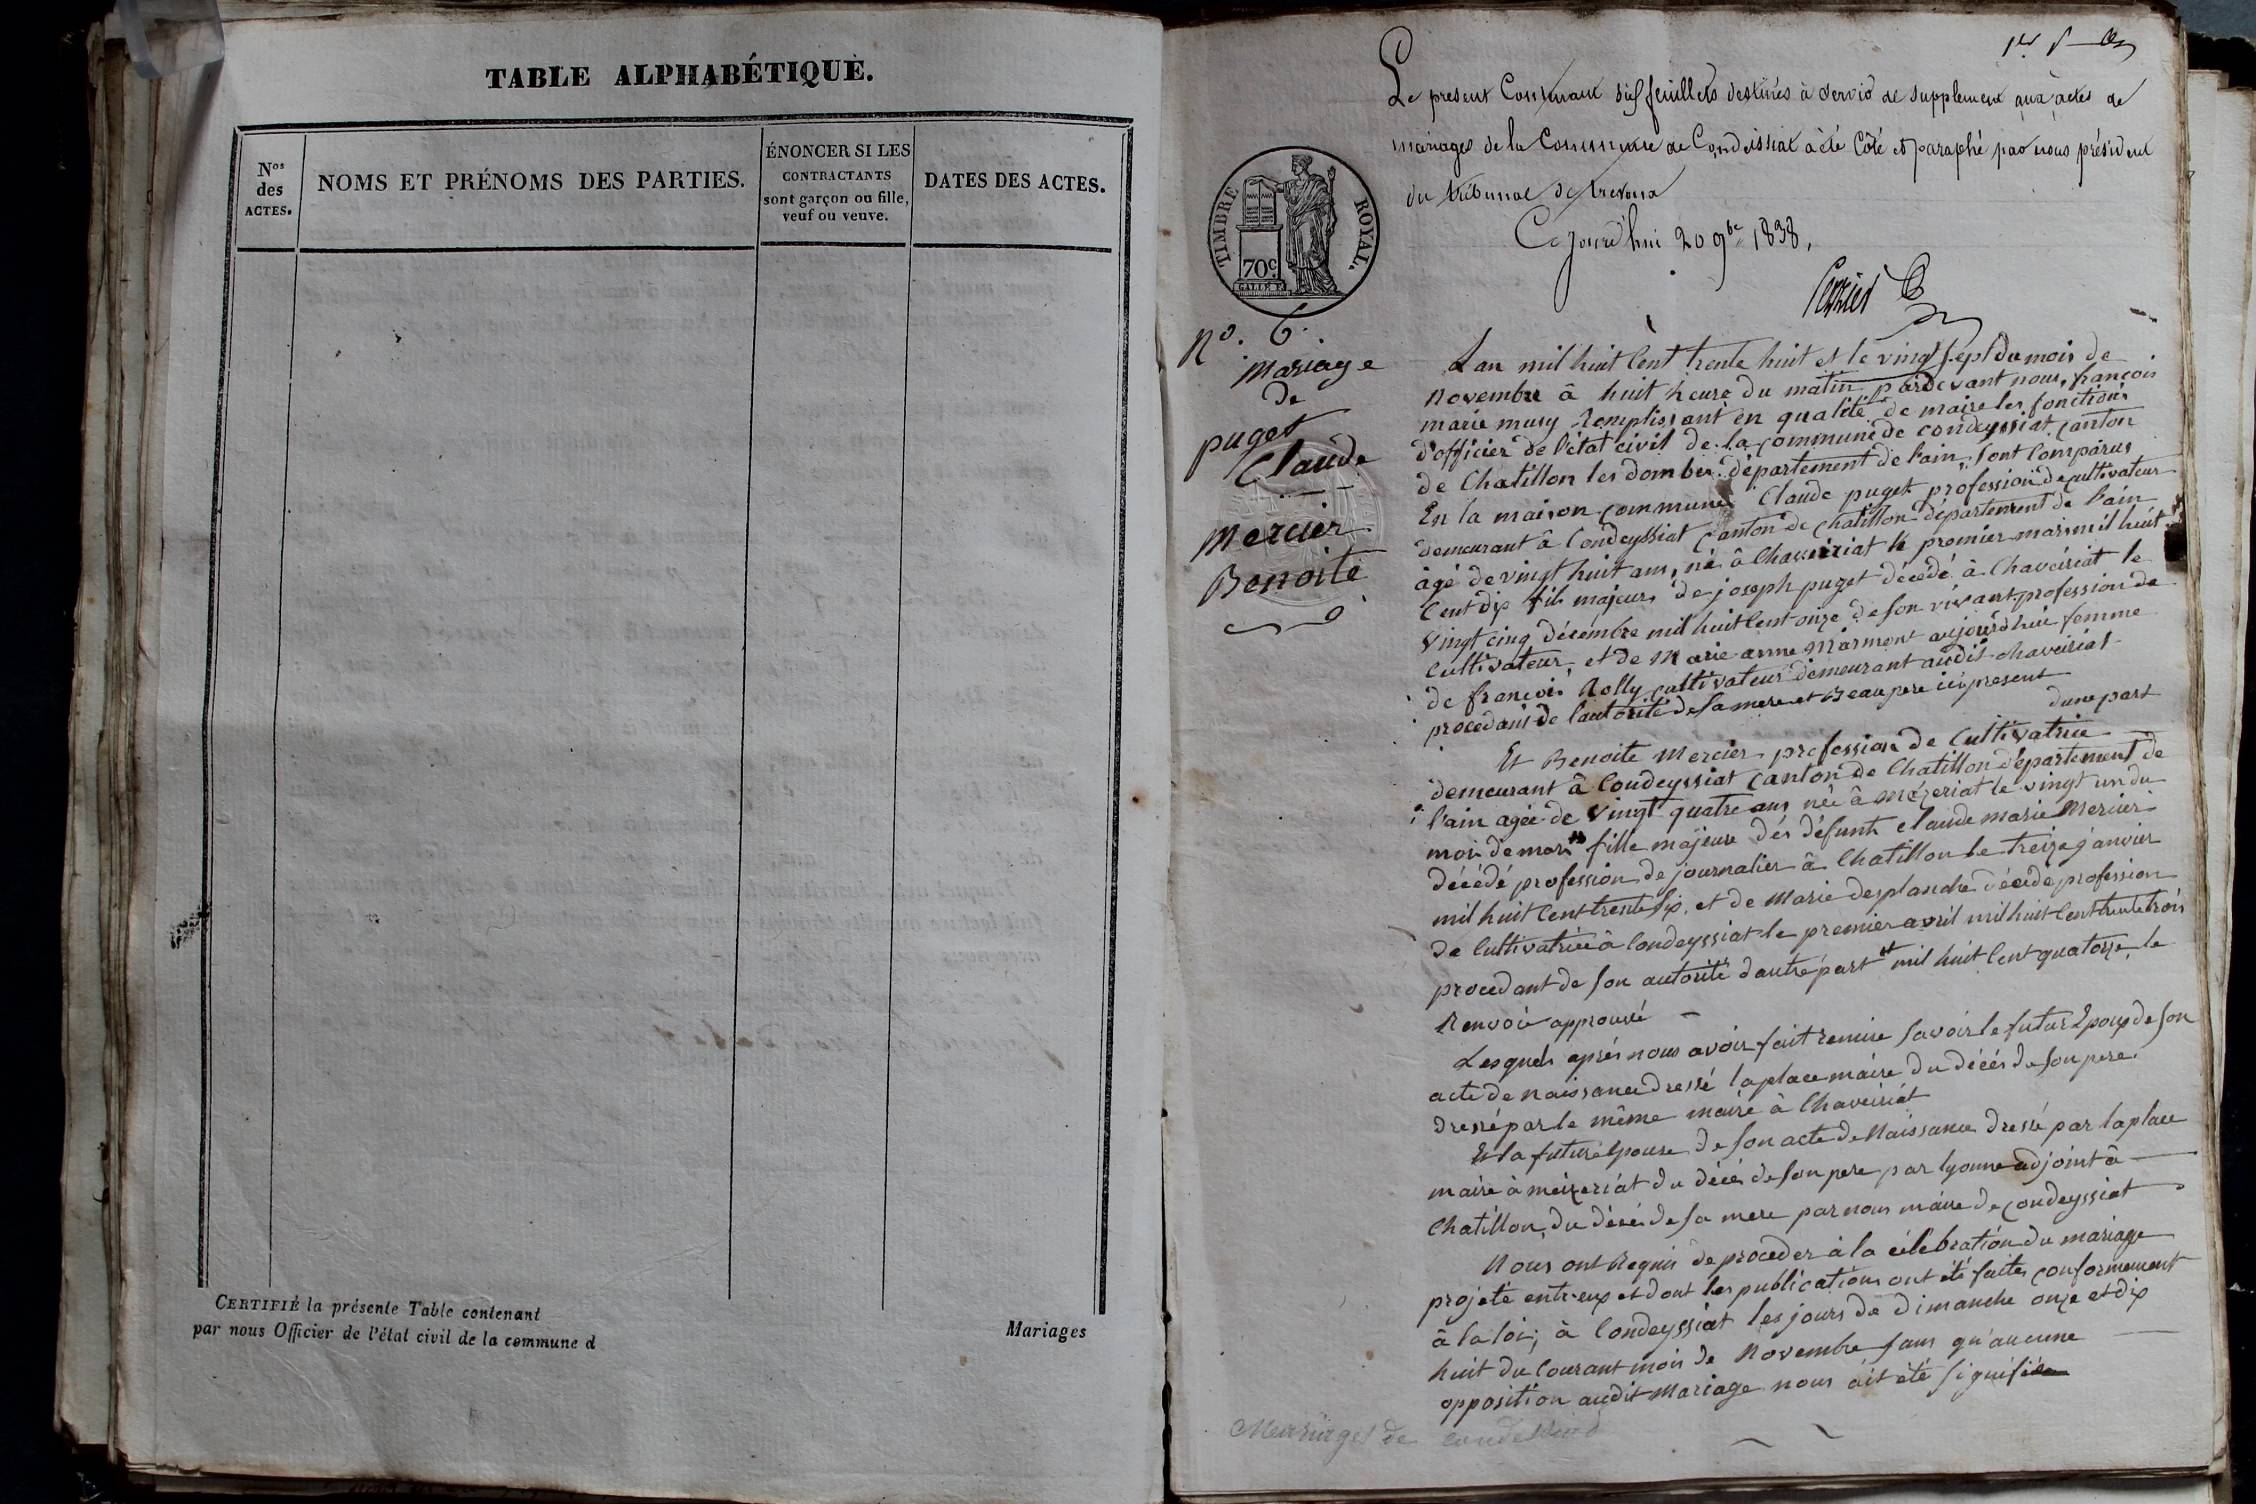 TABLE ALPHABÉTIQUE.
Nos
des
ACTES.
NOMS ET PRÉNOMS DES PARTIES.
ÉNONCER SI LES
CONTRACTANTS
sont garçon ou fille,
veuf ou veuve.
DATES DES ACTES.
CERTIFIÉ la présente Table contenant
par nous Officier de l'état civil de la commune d
Mariages
Le present Contenant six feuillets destinés à servir de supplement aux actes de
mariages de la Commune de Condeissiat a été Côté et paraphé par nous président
du tribunal de trevoux
Ce jourd'hui 20 9bre 1838.
TIMBRE ROYAL.
70c.
No. 6.
Mariage
de
puget
Claude
Mercier
Benoite
Lan mil huit Cent trente huit et le vingt sept du mois de
Novembre à huit heure du matin pardevant nous, francois
marie musy Remplissant en qualité de maire les fonctions
d'officier de l'état civil de la commune de condeyssiat canton
de Chatillon les dombes département de l'ain, sont Comparus
En la maison commune Claude puget profession de cultivateur
demeurant à Condeyssiat Canton de Chatillon département de l'ain
âgé de vingt huit ans, né à Chaveiriat le premier mars mil huit
Cent dix fils majeurs de joseph puget décédé à Chaveiriat le
vingt cinq décembre mil huit Cent onze de son vivant profession de
Cultivateur, et de Marie anne Marmont aujourd'hui femme
de francois Rolly cultivateur demeurant audit chaveiriat
procedant de l'autorité de sa mere et Beau pere ici present
dune part
Et Benoite Mercier profession de Cultivatrice
demeurant à Condeyssiat Canton de Chatillon département de
l'ain agée de vingt quatre ans née à mezeriat le vingt un du
mois de mars fille majeure des défunts claude marie Mercier
décédé profession de journalier à Chatillon le treize janvier
mil huit Cent trente six, et de Marie desplanche décédé profession
de Cultivatrice à Condeyssiat le premier avril mil huit Cent trente trois
procedant de son autorité dautre part mil huit Cent quatorze, le
Renvoie approuvé
Lesquels après nous avoir fait remise savoir le futur Epoux de son
acte de naissance dressé laplace maire du décès de son pere
dressé par le même maire à Chaveiriat
Et la future Epouse de son acte de Naissance dressé par laplace
maire à meizeriat du décès de son pere par lyonne adjoint à
Chatillon, du décès de sa mere par nous maire de condeyssiat
Nous ont Requis de proceder à la célébration du mariage
projeté entr'eux et dont les publications ont été faites conformement
à la loi; à Condeyssiat les jours de dimanche onze et dix
huit du Courant mois de Novembre sans qu'aucune
opposition audit Mariage nous ait été signifiée
Mariages de Condeissiat